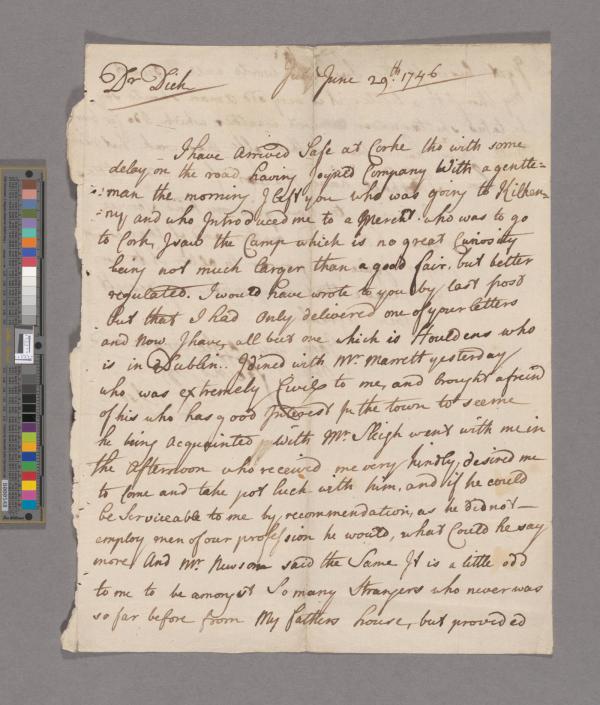 Dr Dick June 29th. 1746
I have arrived Safe at Corke tho with some
delay on the road having Joyned Company With a gentle=
=man the morning I left you who was going to Kilken=
=ny and who Introduced me to a Mercht. who was to go
to Cork, I saw the Camp which is no great Curiosity
being not much larger than a good fair. but better
regulated. I would have wrote to you by last post
but that I had Only delivered one of your letters
and Now I have, all but one which is Houldens who
is in Dublin.. I dined with Mr. Marrett yesterday
who was extremely Civile to me, and brought a freind
of his who has good Interest In the town to see me
he being acquainted with Mr. Sleigh went with me in
the Afternoon who received me very kindly, desired me
to Come and take pot luck with him, and if he could
be Serviceable to me by, recommendation, as he did not
employ men of our profession he would, what Could he say
more And Mr. Newsom said the Same It is a little odd
to me to be amongst So many Strangers who never was
so far before from My fathers house, but provided